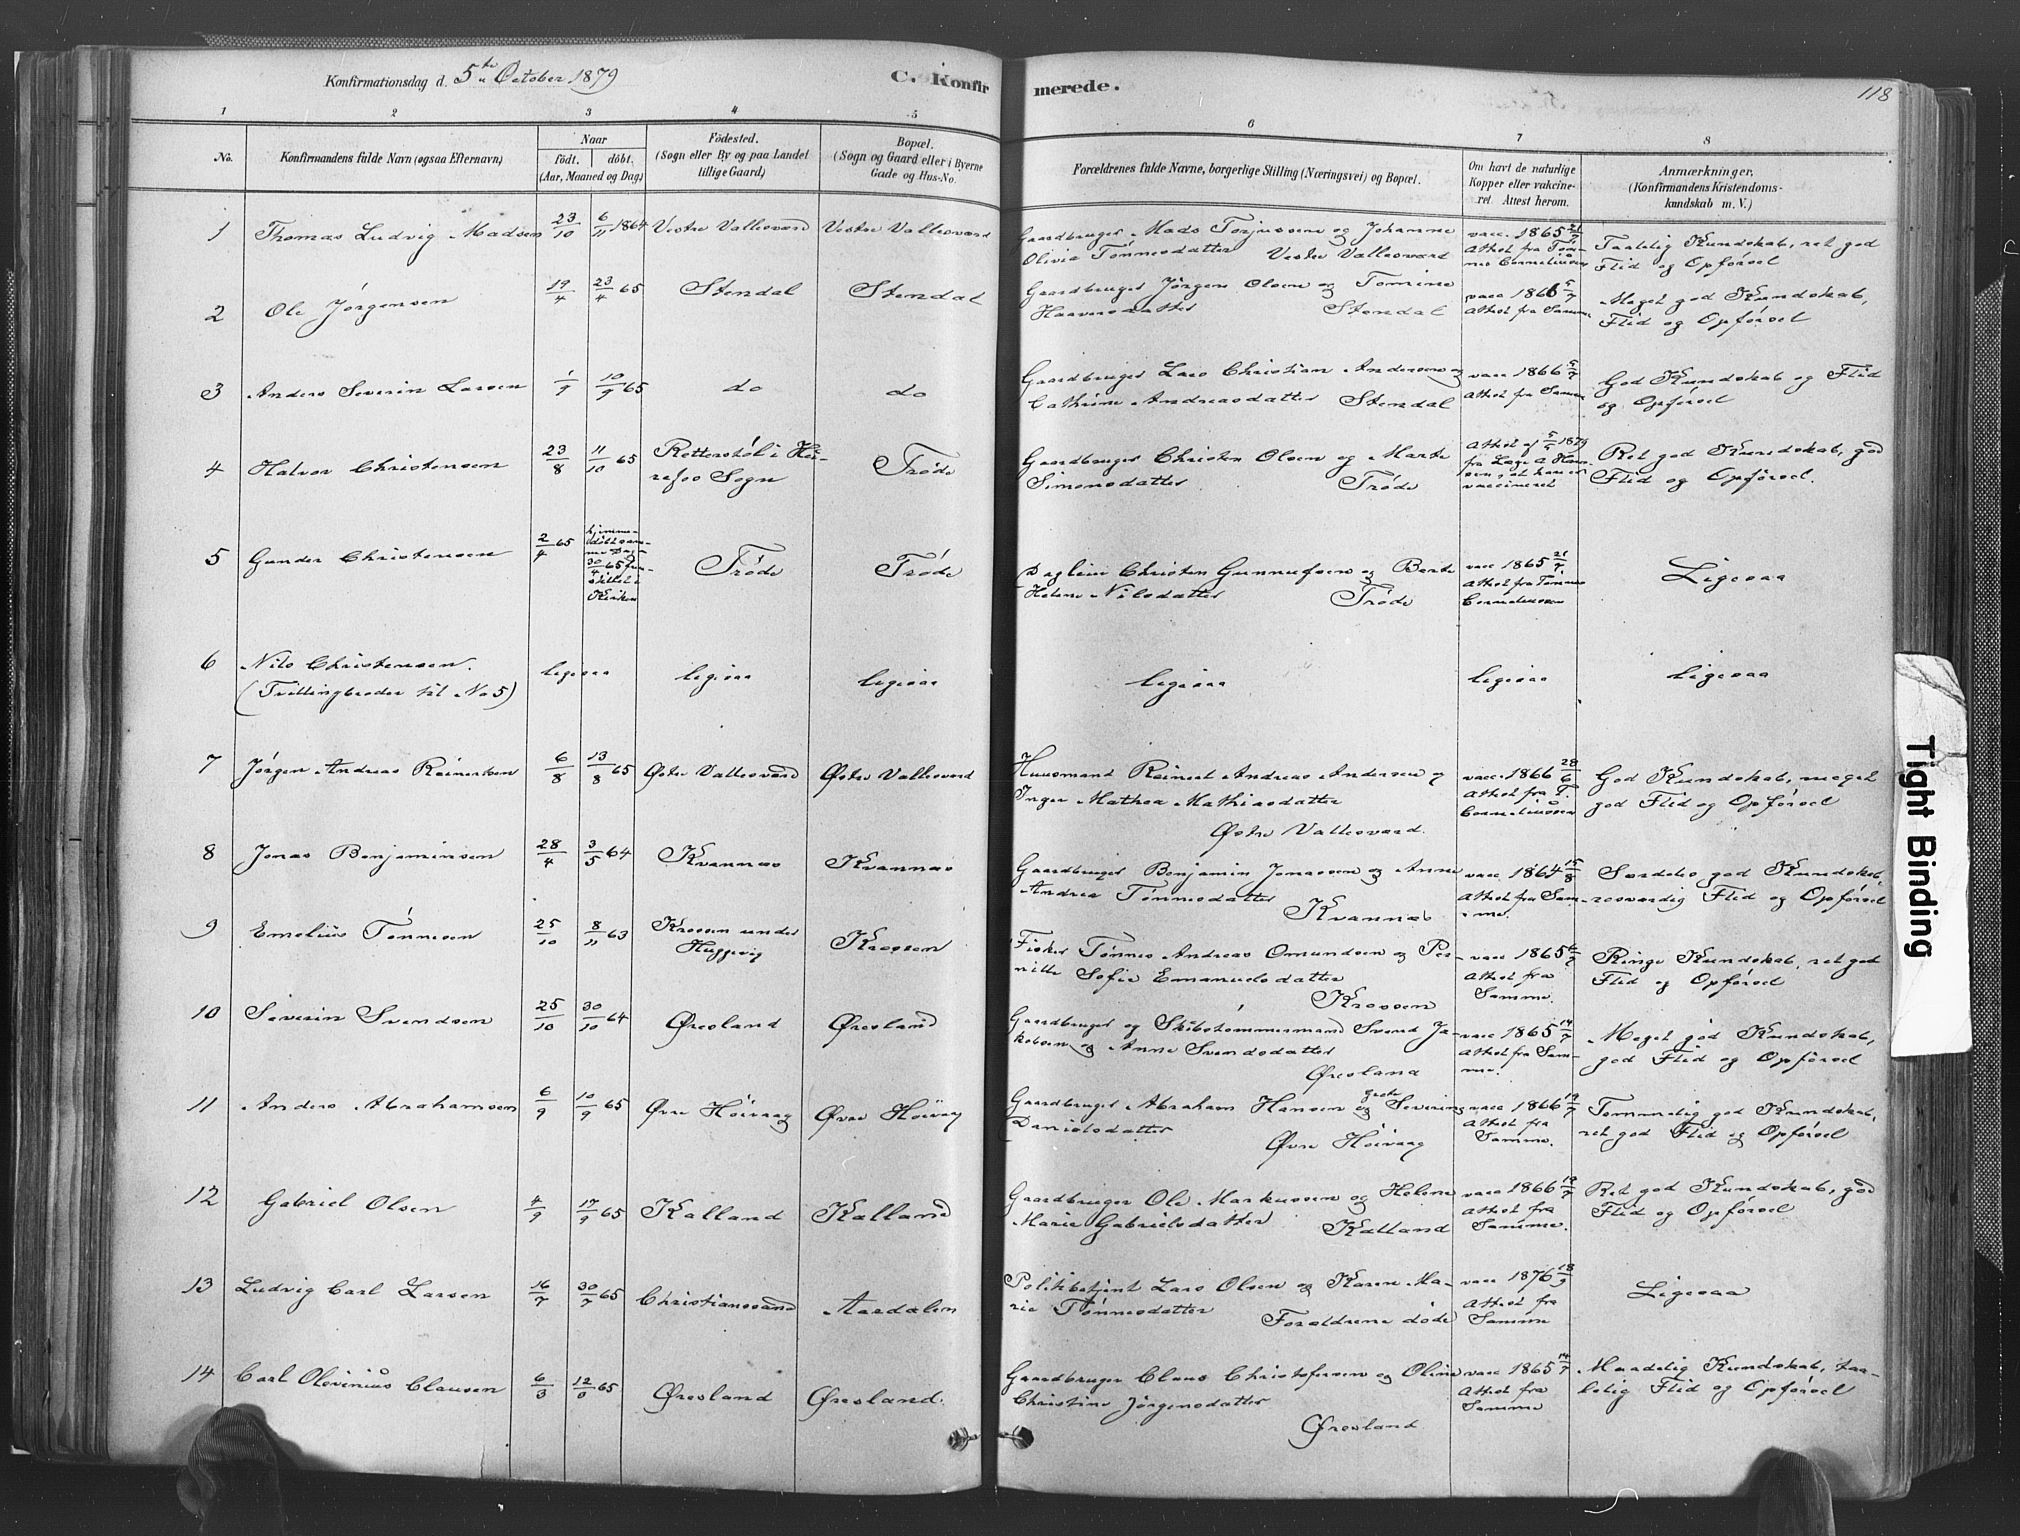 Konfirmationsdag d. 5te October 1879
C. Konfir merede.
118
1 2 3 4 5 6 7 8
No.
Konfirmandens fulde Navn (ogsaa Efternavn)
Naar
født. døbt.
(Aar, Maaned og Dag)
Fødested.
(Sogn eller By og paa Landet
tillige Gaard)
Bopæl.
(Sogn og Gaard eller i Byerne
Gade og Hus-No.
Forældrenes fulde Navne, borgerlige Stilling (Næringsvei) og Bopæl.
Om havt de naturlige
Kopper eller vakcine-
ret. Attest herom.
Anmærkninger.
(Konfirmandens Kristendoms-
kundskab m. V.)
1 Thomas Ludvig Madsen 23/10 6/11 1864 Vestre Vallesværd Vestre Vallesværd Gaardbruger Mads Torjussen og Johanne vacc. 1865 21/7 Taalelig Kundskab, ret god
Olivia Tønnesdatter Vestre Vallesværd Attest fra Tøn- Flid og Opførsel
nes Corneliussen
2 Ole Jørgensen 19/4 23/4 65 Stendal Stendal Gaardbruger Jørgen Olsen og Tomine vacc 1866 5/7 Meget god Kundskab,
Haaversdatter Stendal Attest fra Samme Flid og Opførsel
3 Anders Severin Larsen 1/9 10/9 65 do do Gaardbruger Lars Christian Andersen og vacc 1866 5/7 God Kundskab og Flid
Cathrine Andreasdatter Stendal Attest fra Samm og Opførsel
4 Halvor Christensen 23/8 11/10 65 Retterstøl i He- Trøde Gaardbruger Christen Olsen og Marte Attest af 5/5 1879 Ret god Kundskab, god
refos Sogn Simonsdatter Trøde fra Læge A. Han- Flid og Opførsel.
sen, at han er
vaccineret
5 Gunder Christensen 2/4 65 hjemme-
døbt sam-
me Dag
30/4 65 frem-
stillet i
Kirken Trøde Trøde Dagleier Christen Gunnufsen og Berte vacc 1865 21/7 Ligesaa
Helene Nilsdatter Trøde Attest fra Tønnes
Corneliussen
6 Nils Christensen. ligesaa ligesaa ligesaa ligesaa ligesaa Ligesaa
(Tvillingbroder til No 5)
7 Jørgen Andreas Reinertsen 6/8 13/8 65 Østre Vallesværd Østre Vallesværd Huusmand Reinert Andreas Andersen og vacc. 1866 28/6 God Kundskab, meget
Inger Mathea Mathiasdatter Attest fra T. god Flid og Opførsel
Østre Vallesværd. Corneliussen
8 Jonas Benjaminsen 28/4 3/5 64 Kvannæs Kvannæs Gaardbruger Benjamin Jonassen og Anne vacc 1864 15/8 Særdeles god Kundskab,
Andrea Tønnesdatter Attest fra Sam- rosværdig Flid og Opførsel
Kvannæs me.
9 Emelius Tønnesen 25/10 8/11 63 Krossen under Krossen Fisker Tønnes Andreas Omundsen og Per- vacc 1865 Ringe Kundskab, ret god
Huggevig nille Sofie Emanuelsdatter Attest fra Flid og Opførsel
Krossen Samme.
10 Severin Svendsen 25/10 30/10 64 Øresland Øresland Gaardbruger og Skibstømmermand Svend Ja- vacc 1865 14/7 Meget god Kundskab,
kobsen og Anne Svendsdatter Attest fra Sam- god Flid og Opførsel
Øresland me.
11 Anders Abrahamsen 6/9 10/9 65 Øvre Høivaag Øvre Høivag Gaardbruger Abraham Hansen og Grete Severine vacc 1866 19/7 Temmelig god Kundskab,
Danielsdatter Attest fra ret god Flid og Opførsel
Øvre Høivaag Samme.
12 Gabriel Olsen 4/9 17/9 65 Kalland Kalland Gaardbruger Ole Markussen og Helene vacc 1866 19/7 Ret god Kundskab, god
Marie Gabrielsdatter Attest fra Flid og Opførsel
Kalland Samme.
13 Ludvig Carl Larsen 16/7 30/7 65 Christianssand Aardalen Politibetjent Lars Olsen og Karen Ma- vacc 1876 18/9 Ligesaa
rie Tønnesdatter Attest fra
Forældrene døde Samme
14 Carl Olevinius Clausen 6/3 12/ 65 Øresland Øresland. Gaardbruger Claus Christofersen og Oline vacc 1865 14/7 Maadelig Kundskab, taa-
Christine Jørgensdatter Attest fra lelig Flid og Opførsel
Øresland Samme
Tight Binding